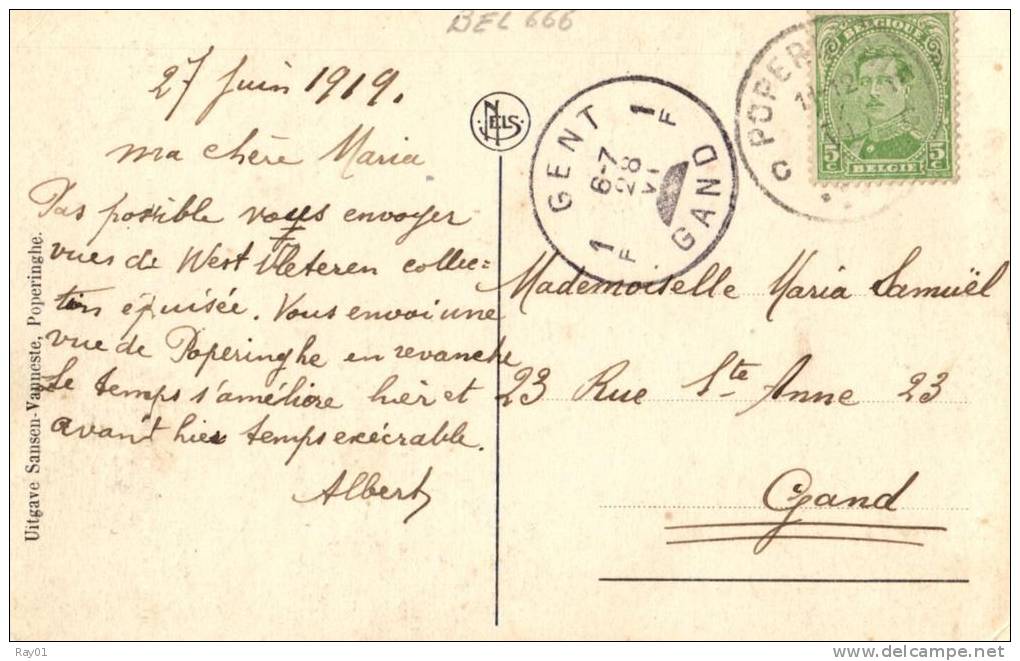 BEL 666
27 Juin 1919.
ma chère Maria
Pas possible vous envoyer
vues de West Vleteren collec=
tion épuisée. Vous envoi une
vue de Poperinghe en revanche
Le temps s'améliore hier et
avant hier temps exécrable.
Albert
Uitgave Sansen-Vanneste, Poperinghe.
NELS
1 GENT 1
6-7
28
VI
F GAND F
POPER
11-12
C
BELGIQUE
5c 5c
BELGIE
Mademoiselle Maria Samuël
23 Rue Ste Anne 23
Gand
Ray01
delcampe.net